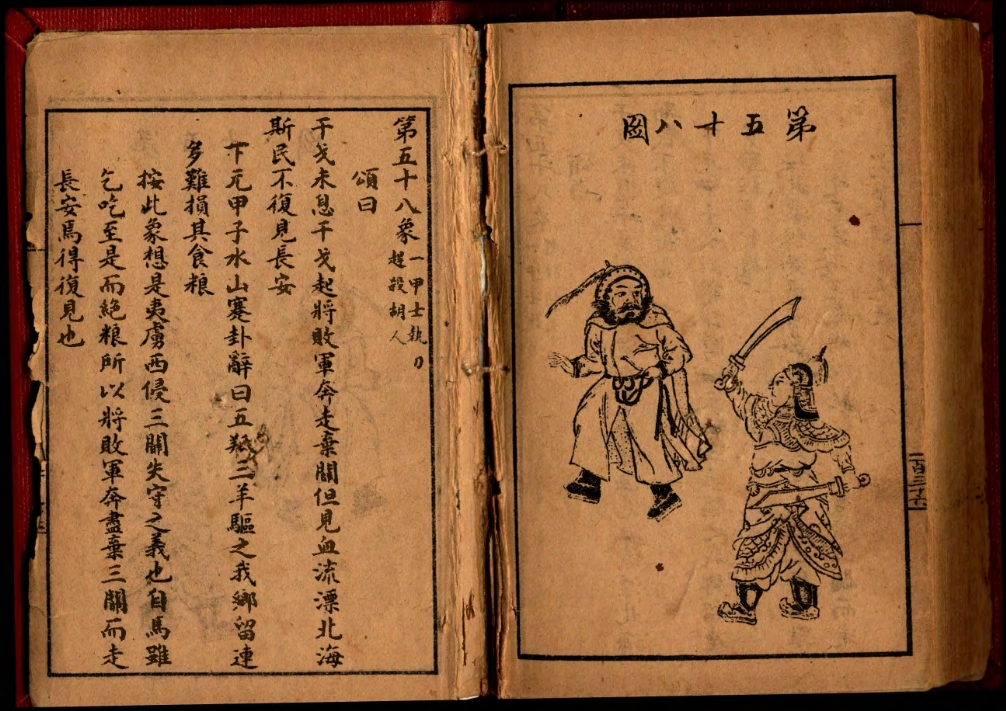 第五十八圖
第五十八象 一甲士執刀
趕殺胡人
頌曰
干戈未息干戈起將敗軍奔走棄關但見血流漂北海
斯民不復見長安
下元甲子水山蹇卦辭曰五羝三羊驅之我鄉留連
多難損其食粮
按此象想是夷虜西侵三關失守之義也自馬雖
乞吃至是而絕粮所以將敗軍奔盡棄三關而走
長安馬得復見也